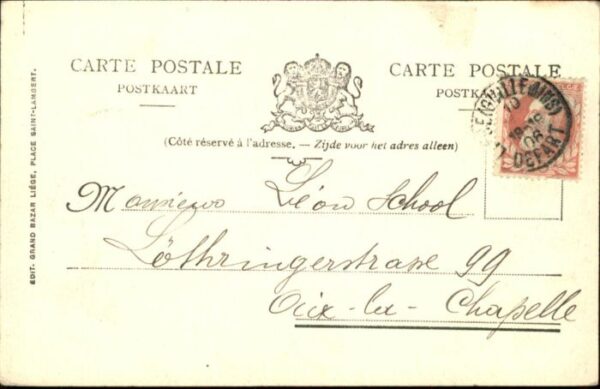 CARTE POSTALE
POSTKAART
CARTE POSTALE
(Côté réservé à l'adresse. — Zijde voor het adres alleen)
EDIT. GRAND BAZAR LIÉGE, PLACE SAINT-LAMBERT.
10
1906
DEPART
Monsieur Léon School
Löthringerstrasse 99
Aix-la-Chapelle